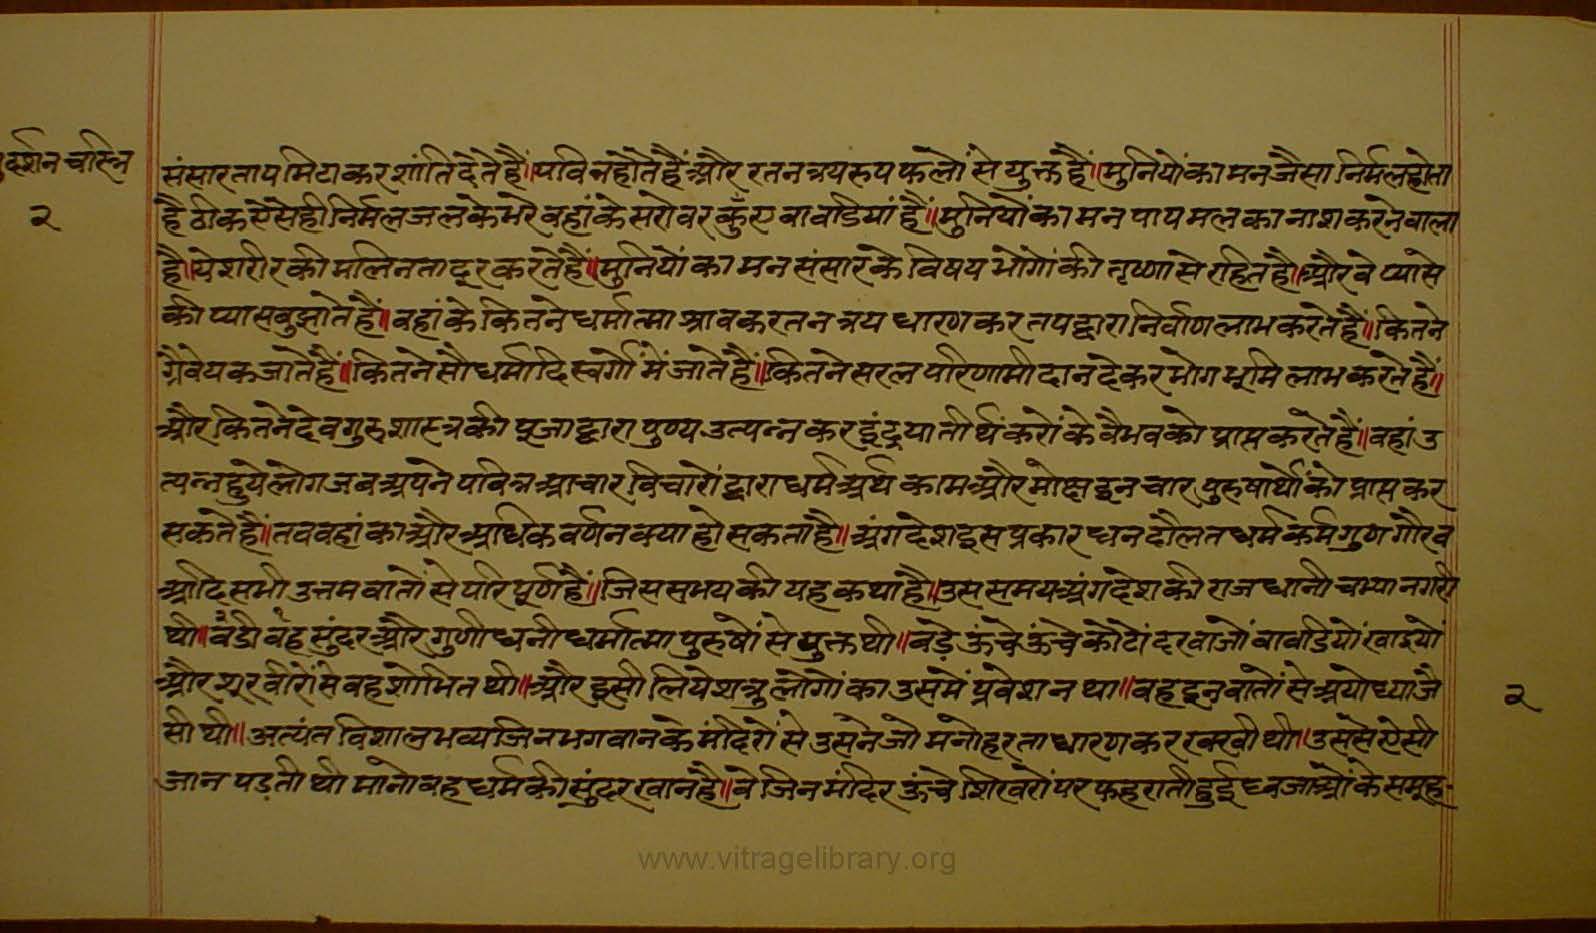 दर्शन चरित्र
२
संसारताप मिटाकर शांति देते हैं॥ पवित्र होते हैं और रतनत्रय रूप फलों से युक्त हैं॥ मुनियों का मन जैसा निर्मल होता
है ठीक ऐसे ही निर्मल जल के भरे वहां के सरोवर कुँए बावडियां हैं॥ मुनियों का मन पाप मल का नाश करने वाला
है। ये शरीर की मलिनता दूर करते हैं॥ मुनियों का मन संसार के विषय भोगों की तृष्णा से रहित है। और वे प्यासे
की प्यास बुझाते हैं॥ वहां के कितने धर्मात्मा श्रावक रतनत्रय धारण कर तप द्वारा निर्वाण लाभ करते हैं॥ कितने
ग्रैवेयक जाते हैं॥ कितने सौधर्मादि स्वर्गों में जाते हैं॥ कितने सरल परिणामी दान देकर भोग भूमि लाभ करते हैं॥
और कितने देव गुरु शास्त्र की पूजा द्वारा पुण्य उत्पन्न कर इंद्र या तीर्थंकरों के वैभव को प्राप्त करते हैं॥ वहां उ
त्पन्न हुये लोग जब अपने पवित्र आचार विचारों द्वारा धर्म अर्थ काम और मोक्ष इन चार पुरुषार्थों को प्राप्त कर
सकते हैं॥ तव वहां का और अधिक वर्णन क्या हो सकता है॥ अंग देश इस प्रकार धन दौलत धर्म कर्म गुण गौरव
आदि सभी उत्तम वातों से परिपूर्ण हैं॥ जिस समय की यह कथा है॥ उस समय अंग देश की राजधानी चम्पा नगरी
थी॥ वडी वह सुंदर और गुणी धनी धर्मात्मा पुरुषों से युक्त थी॥ वडे़ ऊंचे ऊंचे कोटों दरवाजों बावडियों खाइयों
और शूरवीरों से वह शोभित थी॥ और इसी लिये शत्रु लोगों का उसमें प्रवेश न था॥ वह इन वातों से अयोध्या जै
सी थी॥ अत्यंत विशाल भव्य जिन भगवान के मंदिरों से उसने जो मनोहरता धारण कर रक्खी थी॥ उससे ऐसी
जान पड़ती थी मानो वह धर्म की सुंदर खान है॥ वे जिन मंदिर ऊंचे शिखरों पर फहराती हुई ध्वजाओं के समूह
२
www.vitragelibrary.org